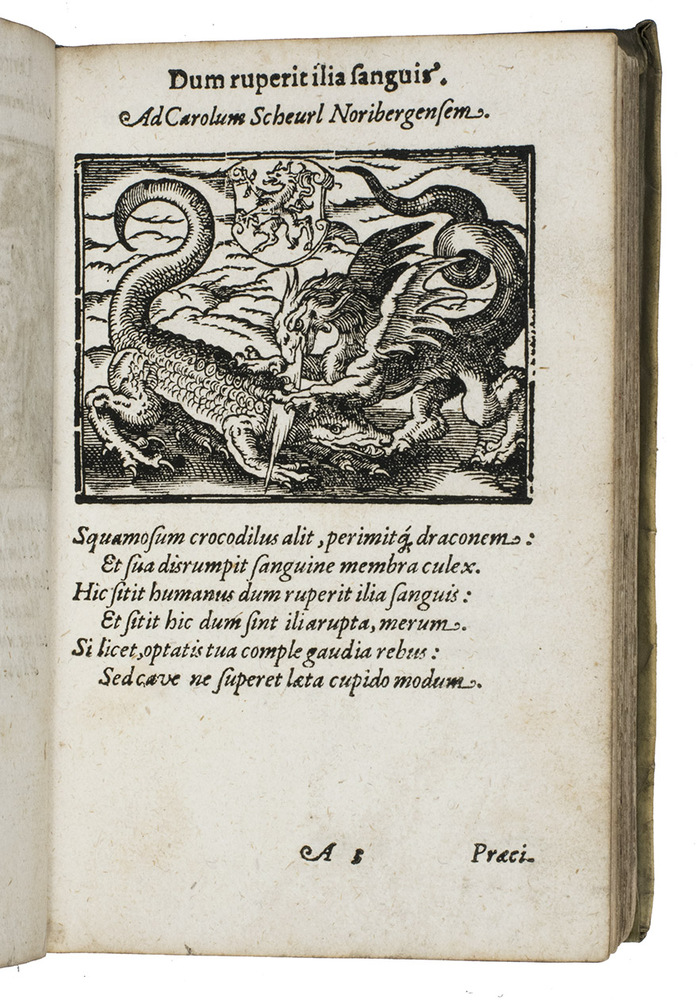 Dum ruperit ilia ſanguis.
Ad Carolum Scheurl Noribergenſem.
Squamoſum crocodilus alit, perimitq́; draconem:
Et ſua disrumpit ſanguine membra culex.
Hic ſitit humanus dum ruperit ilia ſanguis:
Et ſitit hic dum ſint ilia rupta, merum.
Si licet, optatis tua comple gaudia rebus:
Sed cave ne ſuperet læta cupido modum.
A 5
Præci-